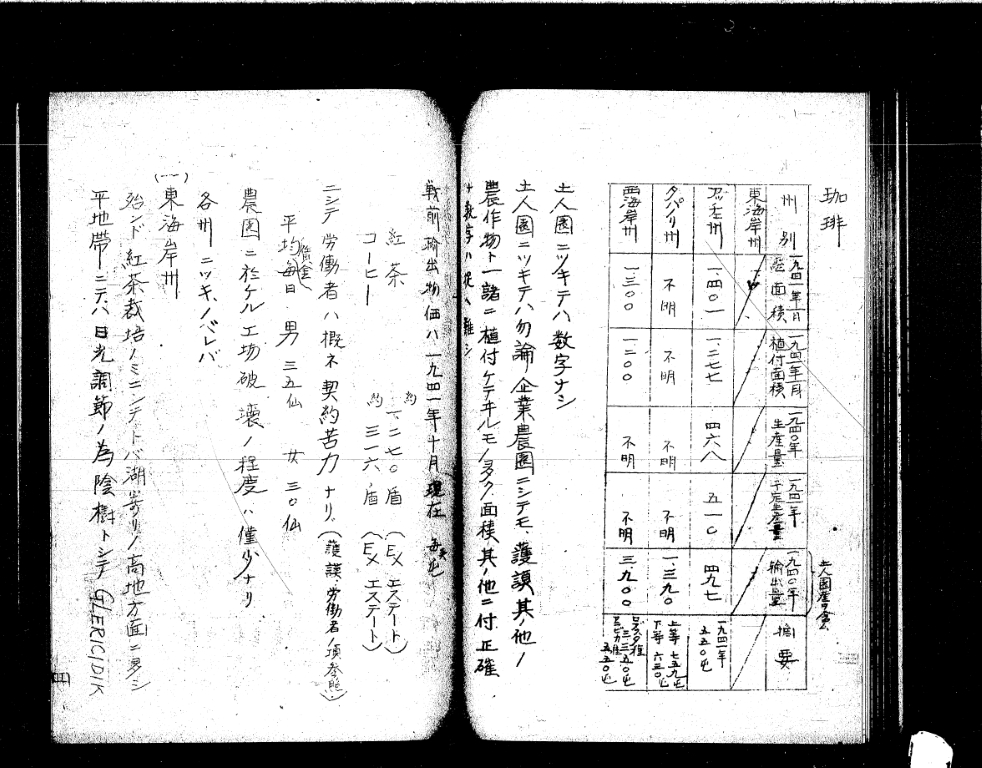 珈琲
州別 一九四一年一月総面積 一九四一年一月植付面積 一九四〇年生産量 一九四一年予定生産量 一九四〇年輸出量 摘要
土人園産ヲ含ム
東海岸州
アッチェ州 一.四〇一 一.二七七 四六八 五一〇 四九七 一九四一年 五五〇屯
タパノリ州 不明 不明 不明 不明 一.三九〇 上等 七五九屯 下等 六三〇屯
西海岸州 一.三〇〇 一.二〇〇 不明 不明 三.九〇〇 ロブスタ種 三.三五〇屯 五五〇屯
土人園ニツキテハ数字ナシ
土人園ニツキテハ勿論企業農園ニシテモ、護謨其ノ他ノ
農作物ト一諸ニ植付ケテヰルモノ多ク面積其ノ他ニ付正確
ナ数字ハ捉ヘ難シ
戦前輸出物価ハ一九四一年十月現在 毎屯
紅茶 約 一、二七〇盾 (Eメ エステート)
コーヒー 約 三一六盾 (Eメ エステート)
ニシテ労働者ハ概ネ契約苦力ナリ。(護謨、労働者ノ項参照)
平均賃金毎日 男 三五仙 女 三〇仙
農園ニ於ケル工場破壊ノ程度ハ僅少ナリ
各州ニツキ、ノベレバ
(一)東海岸州
殆ンド紅茶栽培ノミニシテトバ湖寄リノ高地方面ニ多シ
平地帯ニテハ日光調節ノ為陰樹トシテ GLERCIDIK